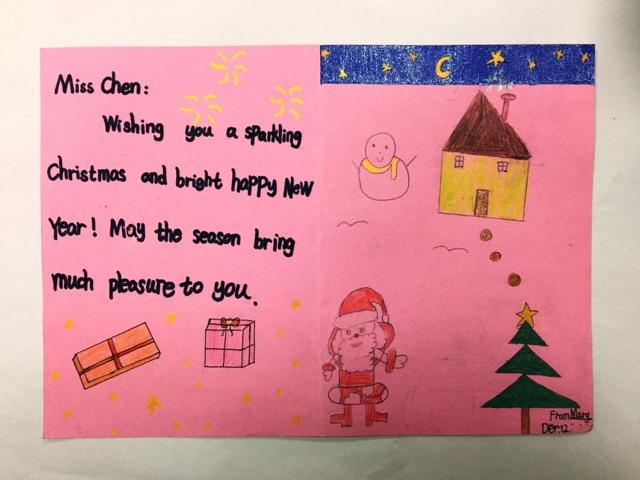 Miss Chen:
Wishing you a sparkling
Christmas and bright happy New
Year! May the season bring
much pleasure to you.
From Mary
Der.12